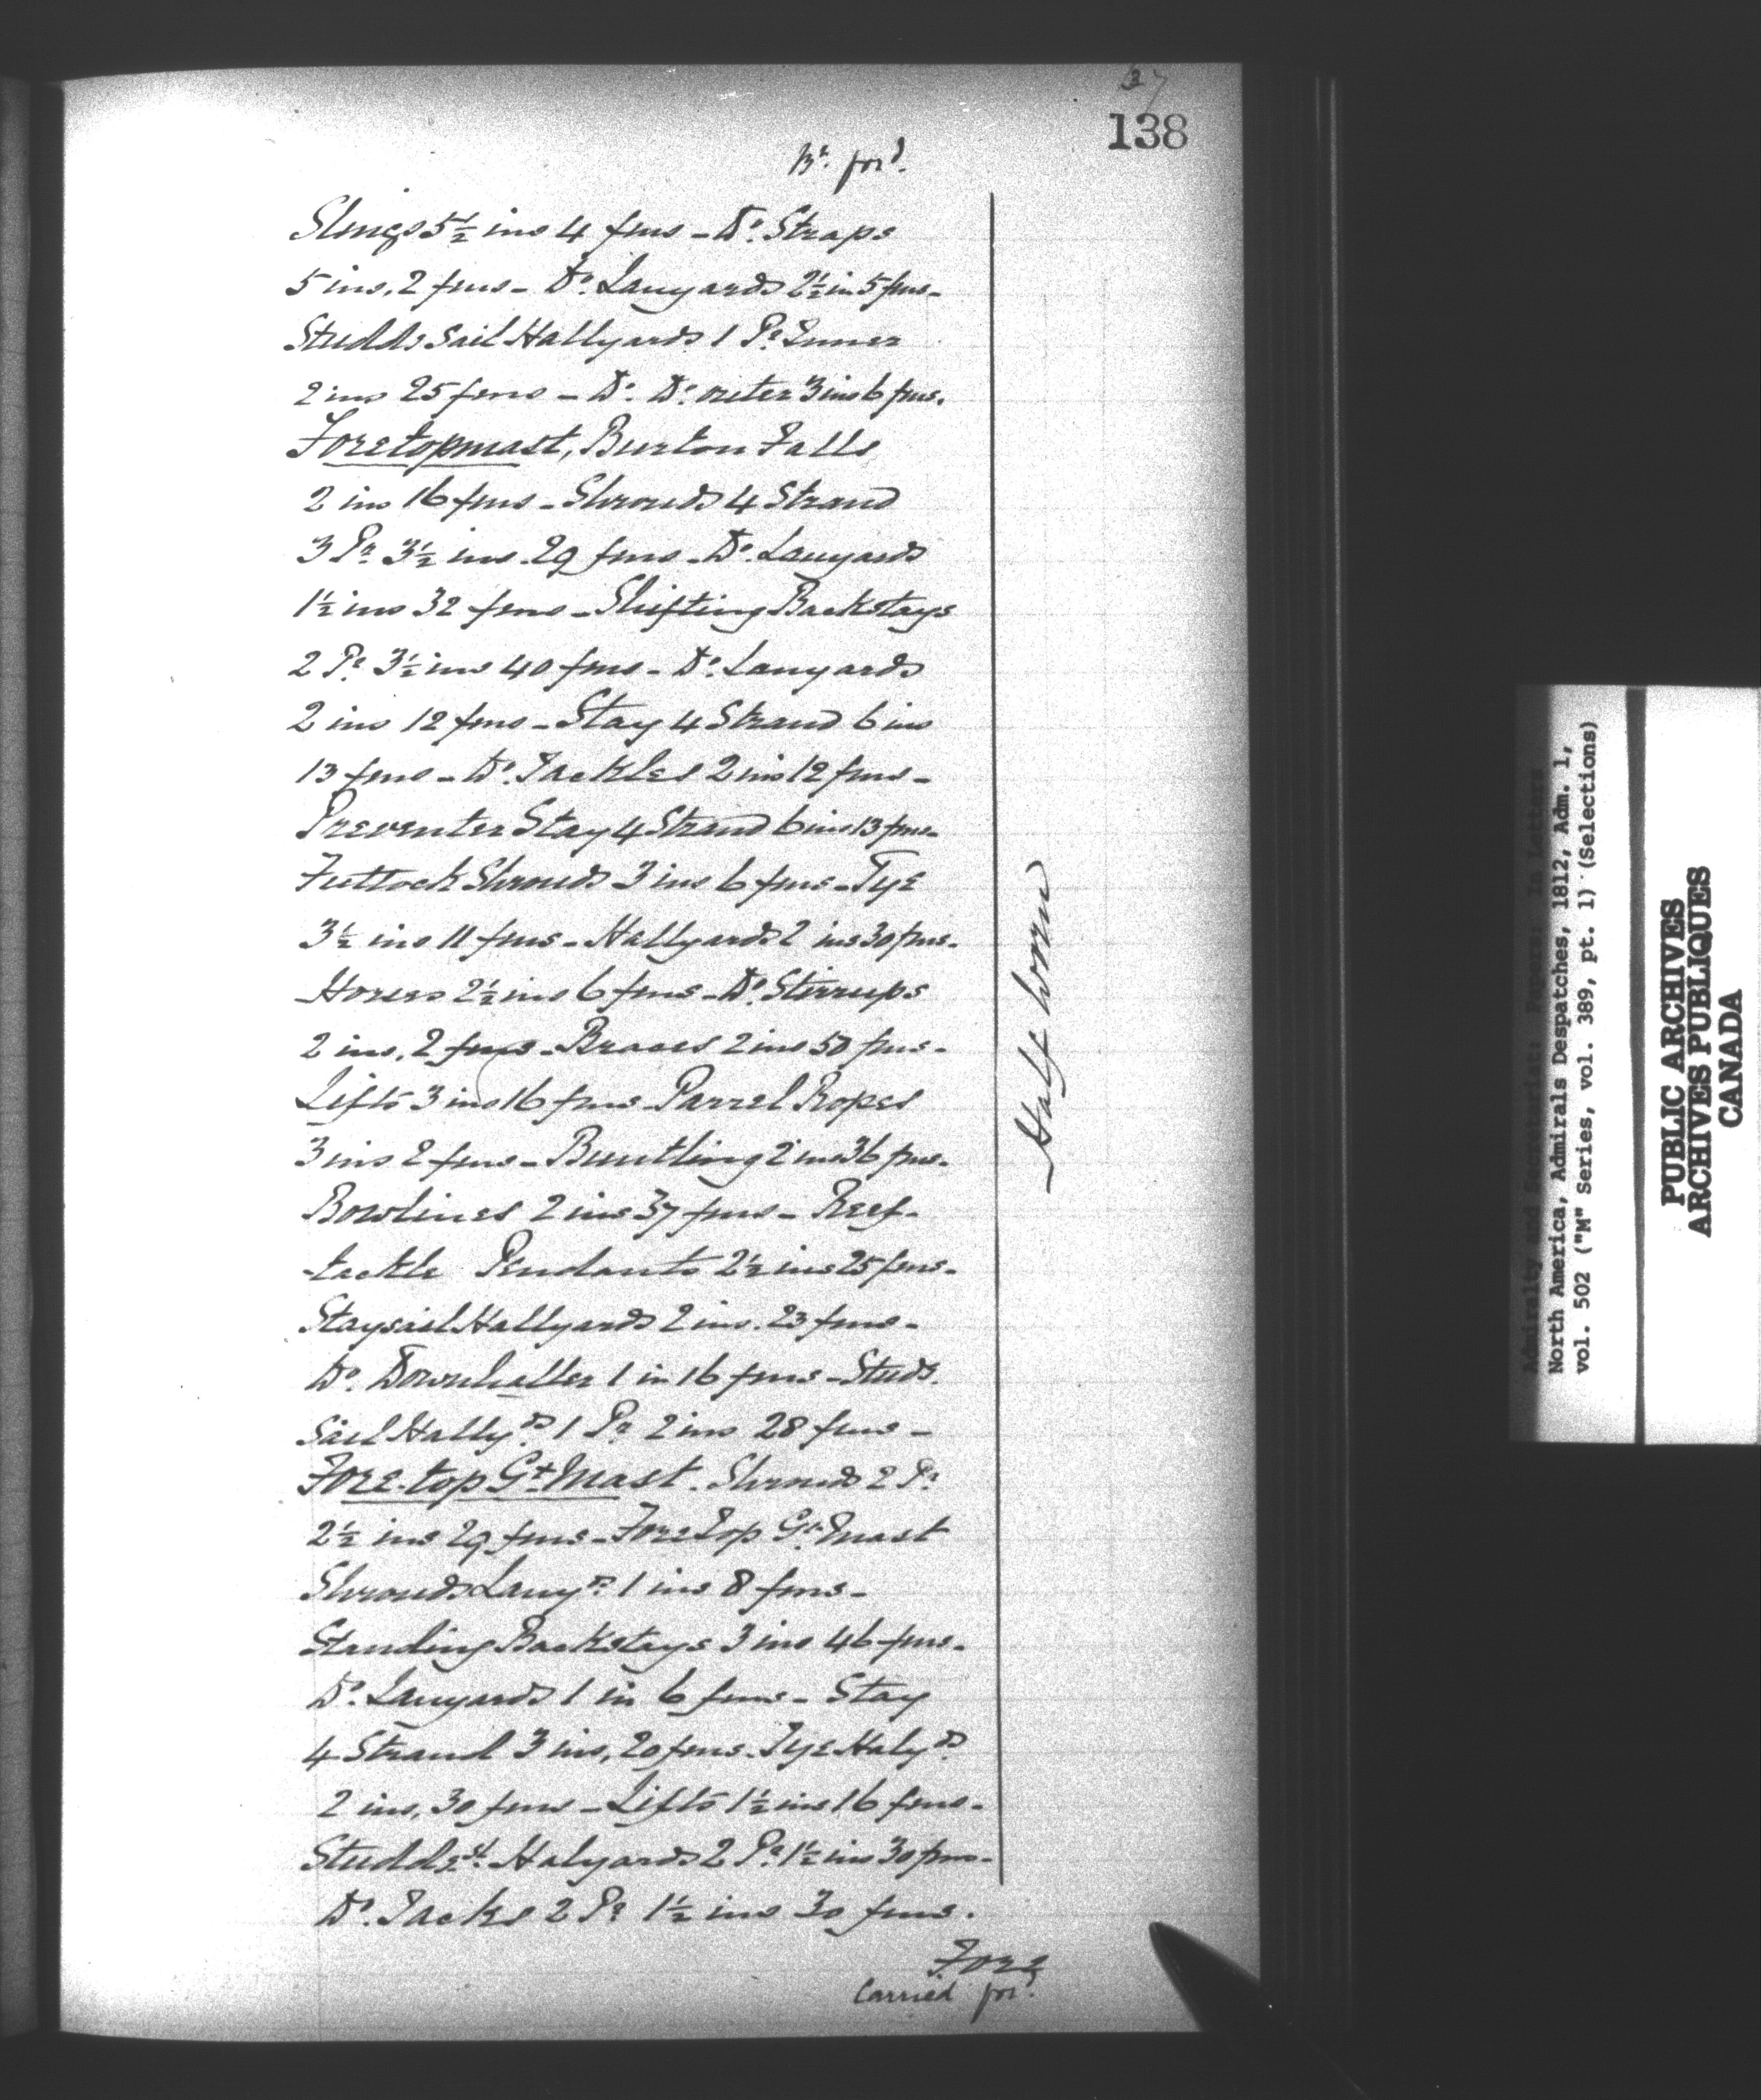 37
138
Bt. ford.
Slings 5½ ins 4 fms - Do. Straps
5 ins, 2 fms - Do. Lanyards 2½ in 5 fms -
Studds Sail Hallyards 1 Pr. Inner
2 ins 25 fms - Do. Do. outer 3 ins 6 fms.
Foretopmast, Burton Falls
2 ins 16 fms - Shrouds 4 Strand
3 Pr. 3½ ins 29 fms - Do. Lanyards
1½ ins 32 fms - Shifting Backstays
2 Pr. 3½ ins 40 fms - Do. Lanyards
2 ins 12 fms - Stay 4 Strand 6 ins
13 fms - Do. Tackles 2 ins 12 fms -
Preventer Stay 4 Strand 6 ins 13 fms -
Futtock Shrouds 3 ins 6 fms - Tye
3½ ins 11 fms - Hallyards 2 ins 30 fms -
Horses 2½ ins 6 fms - Do. Stirrups
2 ins, 2 fms - Braces 2 ins 50 fms -
Lifts 3 ins 16 fms - Parrel Ropes
3 ins 2 fms - Buntling 2 ins 36 fms -
Bowlines 2 ins 37 fms - Reef-
-tackle Pendants 2½ ins 25 fms -
Staysail Hallyards 2 ins. 23 fms -
Do. Downhaller 1 in 16 fms - Studs.
Sail Hallyds. 1 Pr. 2 ins 28 fms -
Fore-top Gt. Mast. Shrouds 2 Pr.
2½ ins 29 fms - Fore Top Gt. Mast
Shrouds Lanyds. 1 ins 8 fms -
Standing Backstays 3 ins 46 fms -
Do. Lanyards 1 in 6 fms - Stay
4 Strand 3 ins, 20 fms - Tye Halyds.
2 ins, 30 fms - Lifts 1½ ins 16 fms -
Studdsl. Halyards 2 Pr. 1½ ins 30 fms -
Do. Tacks 2 Pr. 1½ ins 30 fms.
Fore
Carried ford.
Half worn
Admiralty and Secretariat: Papers: In Letters
North America, Admirals Despatches, 1812, Adm. 1,
vol. 502 ("M" Series, vol. 389, pt. 1) (Selections)
PUBLIC ARCHIVES
ARCHIVES PUBLIQUES
CANADA